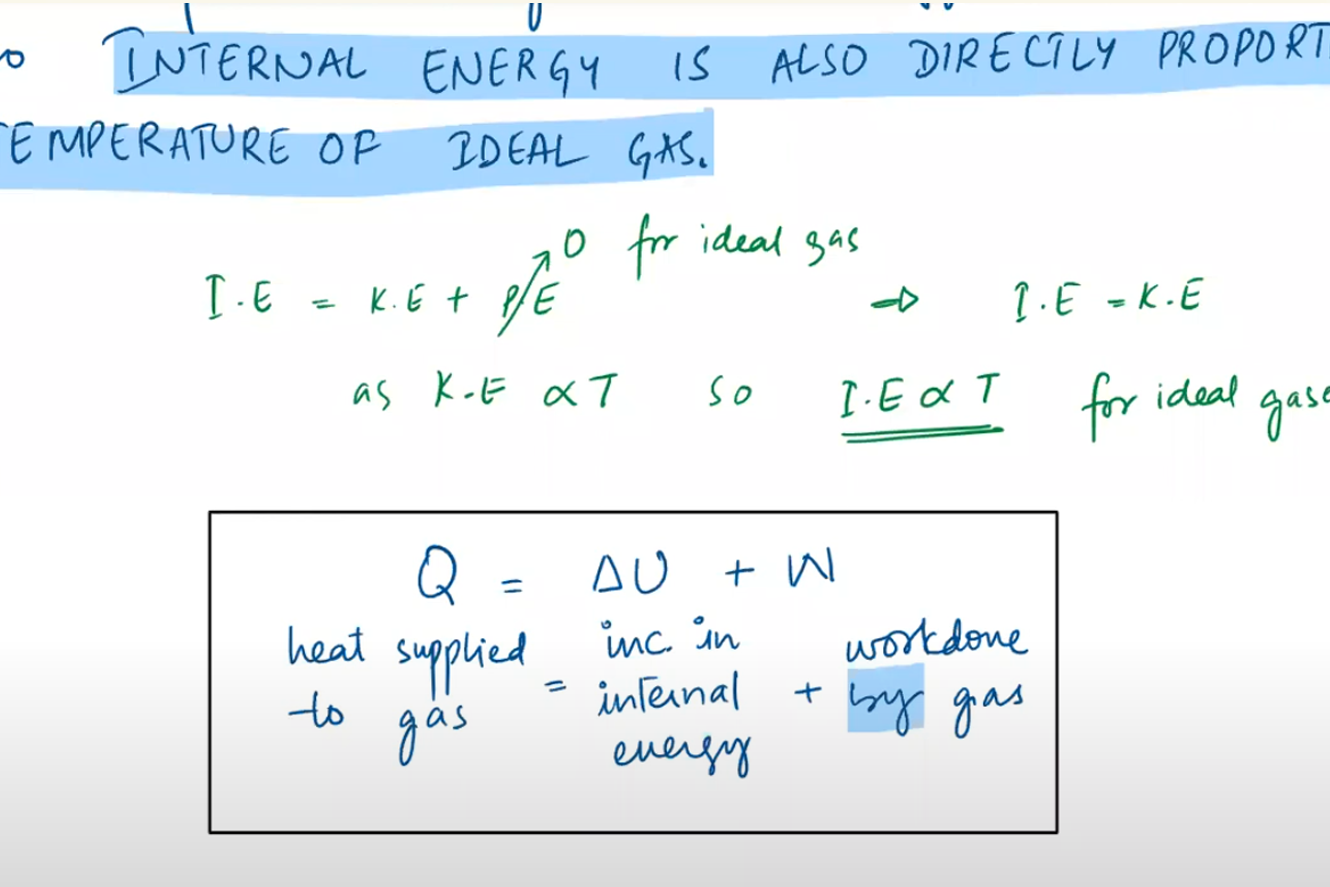 INTERNAL ENERGY IS ALSO DIRECTLY PROPORT
TEMPERATURE OF IDEAL GAS.
I.E = K.E + P/E ↗ 0 for ideal gas → I.E = K.E
as K.E ∝ T so I.E ∝ T for ideal gase
Q = ΔU + W
heat supplied to gas = inc. in internal energy + workdone by gas